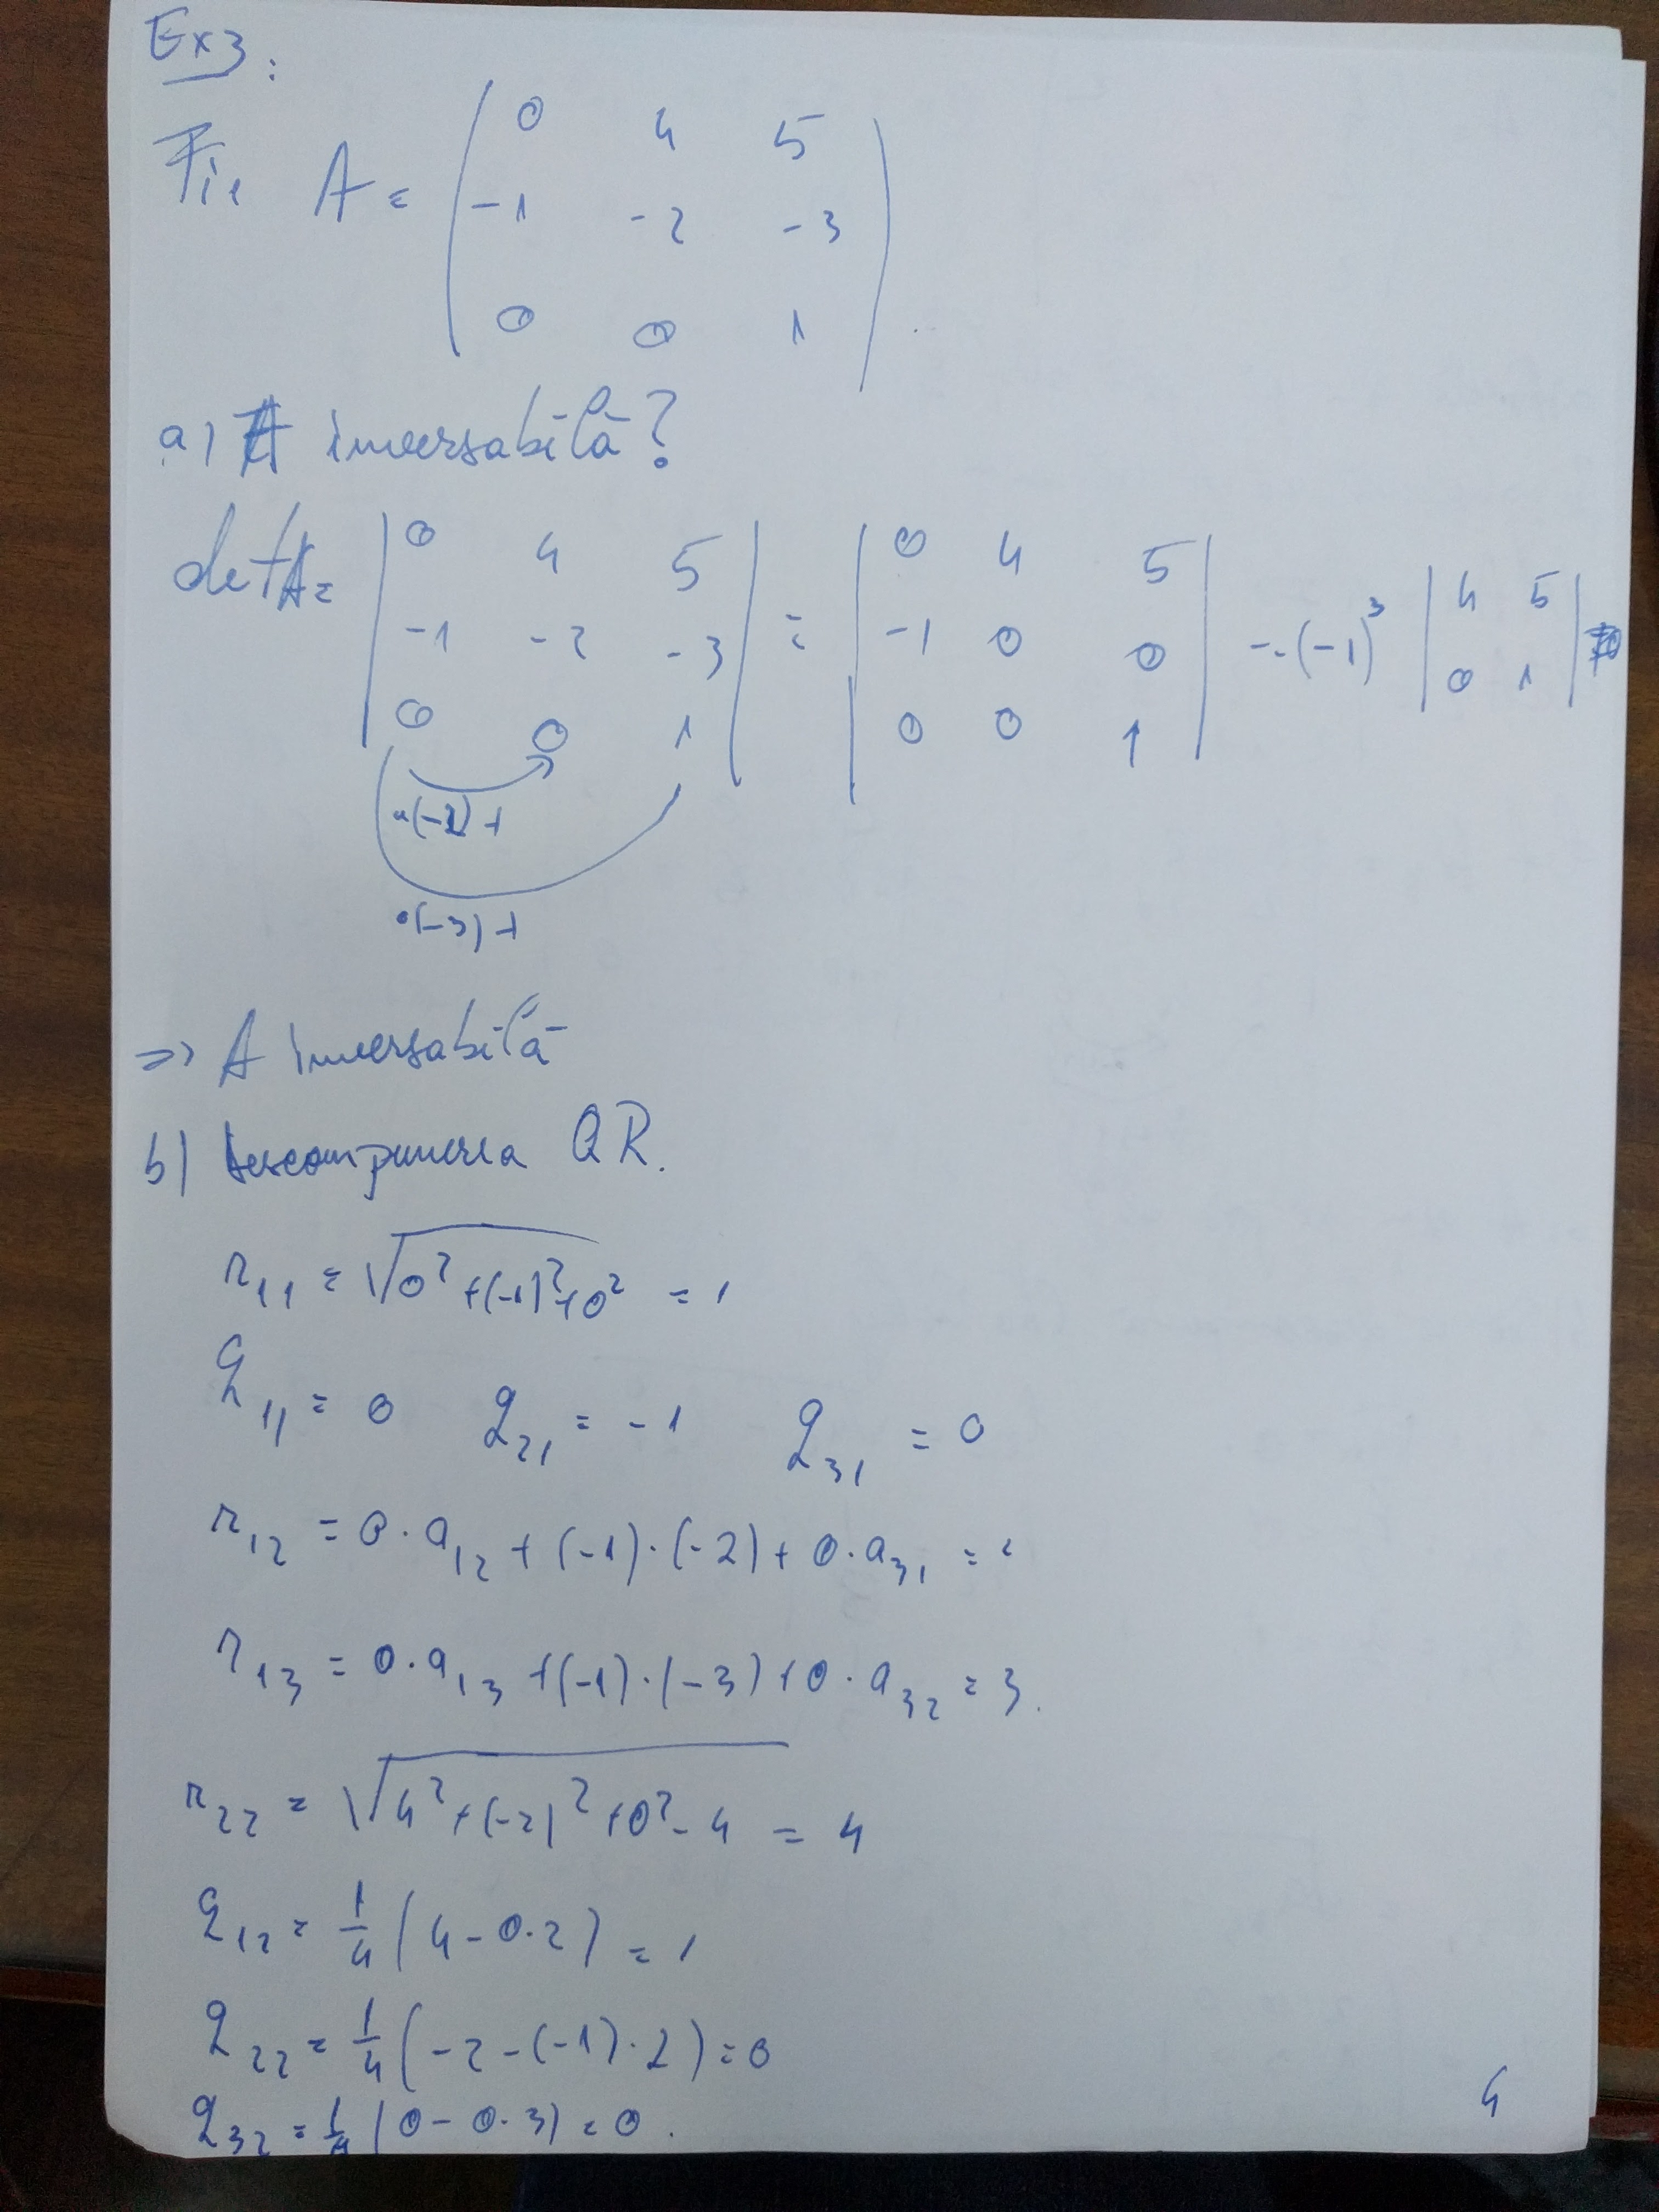 Ex 3:
Fie A = ( 0 4 5
-1 -2 -3
0 0 1 )
a) A inversabilă?
det A = | 0 4 5 | = | 0 4 5 | = -(-1)³ | 4 5 | ≠ 0
| -1 -2 -3 | | -1 0 0 | | 0 1 |
| 0 0 1 | | 0 0 1 |
·(-2) +
·(-3) +
=> A inversabilă
b) Descompunerea QR.
r₁₁ = √(0² + (-1)² + 0²) = 1
q₁₁ = 0 q₂₁ = -1 q₃₁ = 0
r₁₂ = 0·a₁₂ + (-1)·(-2) + 0·a₃₁ =
r₁₃ = 0·a₁₃ + (-1)·(-3) + 0·a₃₂ = 3.
r₂₂ = √(4² + (-2)² + 0² - 4) = 4
q₁₂ = 1/4 (4 - 0·2) = 1
q₂₂ = 1/4 (-2 - (-1)·2) = 0
q₃₂ = 1/4 (0 - 0·3) = 0.
4